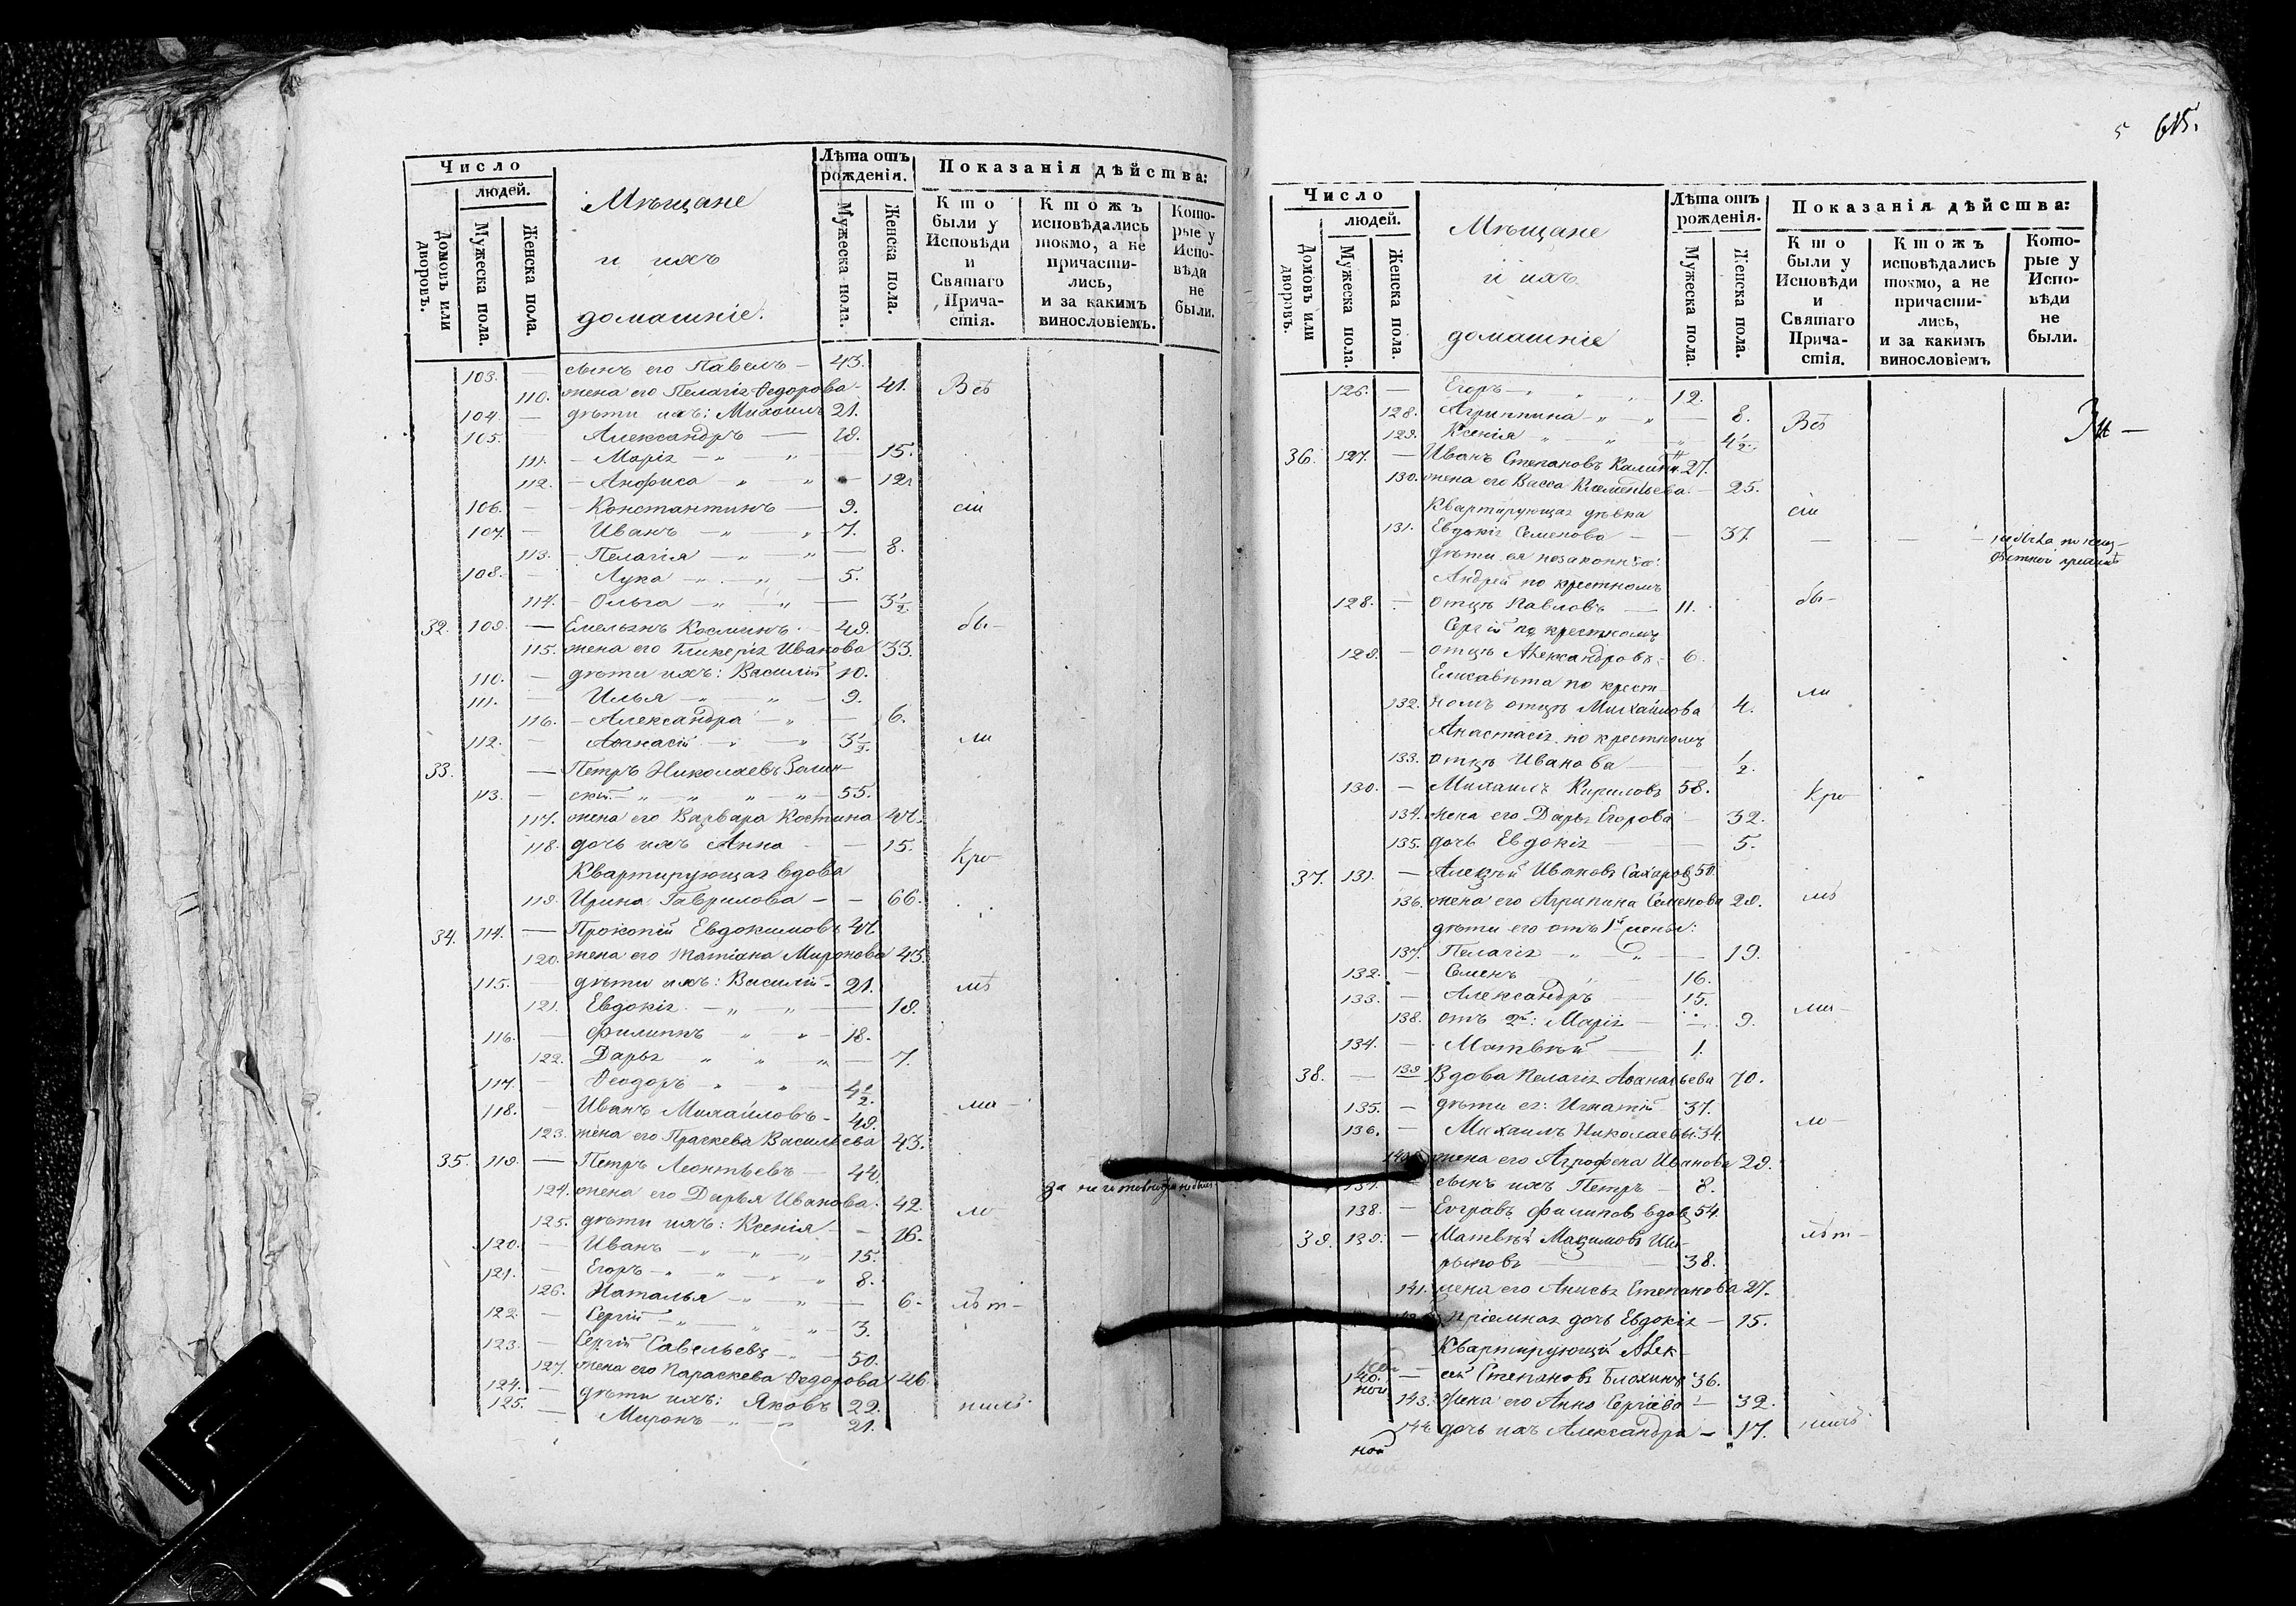 Число
людей.
Домовъ или дворовъ.
Мужеска пола.
Женска пола.
Мѣщане
и ихъ
домашніе.
Лѣта отъ рожденія.
Мужеска пола.
Женска пола.
Показанія дѣйства:
Кто были у Исповѣди и Святаго Причастія.
Ктожъ исповѣдались токмо, а не причастились, и за какимъ винословіемъ.
Которые у Исповѣди не были.
103. — сынъ его Павелъ — 43.
110. жена его Пелагія Ѳедорова — 41. Всѣ
104. — дѣти ихъ: Михаилъ 21.
105. — Александръ — 18.
111. — Марія — „ — „ — 15.
112. — Анфиса — „ „ — 12.
106. — Константинъ — 9. сіи
107. — Иванъ — „ „ — 7.
113. — Пелагія — „ — „ — 8.
108. — Лука — „ — „ — 5.
114. — Ольга — „ „ — 3½
32. 109. — Емельянъ Косминъ — 49. бы-
115. жена его Гликерія Иванова 33.
110. — дѣти ихъ: Василій 10.
111. — Илья — „ „ — 9.
116. — Александра — „ — 6.
112. — Аѳанасій — „ — „ — 3½ ли
33. — Петръ Николаевъ
113. — скій — „ „ „ „ — 55.
117. жена его Варвара Костина 47.
118. дочь ихъ Анна — — 15.
Квартирующая вдова кро-
119. Ирина Гаврилова — — 66.
34. 114. — Прокопій Евдокимовъ 47.
120. жена его Татіана Миронова 43.
115. — дѣти ихъ: Василій — 21. мѣ
121. Евдокія — „ — „ — 19.
116. — Филиппъ „ — 18.
122. Дарья „ „ „ — 7.
117. — Ѳеодоръ „ „ — 4½.
118. — Иванъ Михайловъ — 49. ма-
123. жена его Праскева Васильева 43.
35. 119. — Петръ Леонтьевъ — 44.
124. жена его Дарья Иванова. 42. ло
125. дѣти ихъ: Ксенія — — 16.
120. — Иванъ — „ „ „ 15.
121. — Егоръ — „ — „ „ „ 8.
126. Наталья — „ „ — 6. лѣт-
122. — Сергій — „ — „ „ 3.
123. — Сергій Савельевъ — 50.
127. жена его Параскева Ѳедорова 46.
124. — дѣти ихъ: Яковъ 22. нихъ
125. — Миронъ — „ — 21.
615.
Число
людей.
Домовъ или дворовъ.
Мужеска пола.
Женска пола.
Мѣщане
и ихъ
домашніе
Лѣта отъ рожденія.
Мужеска пола.
Женска пола.
Показанія дѣйства:
Кто были у Исповѣди и Святаго Причастія.
Ктожъ исповѣдались токмо, а не причастились, и за какимъ винословіемъ
Которые у Исповѣди не были.
126. — Егоръ — „ „ „ 12.
128. Агриппина — „ „ — 8. Всѣ
129. Ксенія „ „ „ 4½.
36. 127. — Иванъ Степановъ Калин. 27.
130. жена его Васса Клементьева — 25.
Квартирующая дѣвка сіи
131. Евдокія Семенова — — 37.
дѣти ея незаконн:
Андрей по крестномъ
128. — отцѣ Павловъ — 11. бы-
Сергій по крестномъ
129. — отцѣ Александровъ: 6.
Елисавѣта по крест-
132. номъ отцѣ Михайлова 4. ли
Анастасія по крестномъ
133. отцѣ Иванова — — ½.
130. — Михаилъ Кириловъ 58. кро-
134. жена его Дарья Егорова — 32.
135. дочь Евдокія — — 5.
37. 131. — Алексѣй Ивановъ Сахаровъ 50.
136. жена его Агрипина Семенова 29. мѣ
дѣти его отъ 1й жены:
137. Пелагія — „ „ — 19.
132. — Семенъ 16.
133. — Александръ 15.
138. отъ 2й: Марія — — 9. ма-
134. — Матвѣй — 1.
38. — 139 Вдова Пелагія Аѳанасьева 70.
135. — дѣти ея: Игнатій 37.
136. — Михаилъ Николаевы. 34. ло-
140. жена его Агрофена Иванова 29.
137. — сынъ ихъ Петръ — 8.
138. — Евграфъ Филиповъ вдов. 54.
39. 139. — Матвѣй Максимовъ лѣт-
рыковъ — 38.
141. жена его Анисья Степанова 27.
пріемная дочь Евдокія — 15.
Квартирующій Алек-
140. — сей Степановъ Блохинъ 36.
143. Жена его Анна Сергіева — 32.
144. дочь ихъ Александра — 17. нихъ
ной